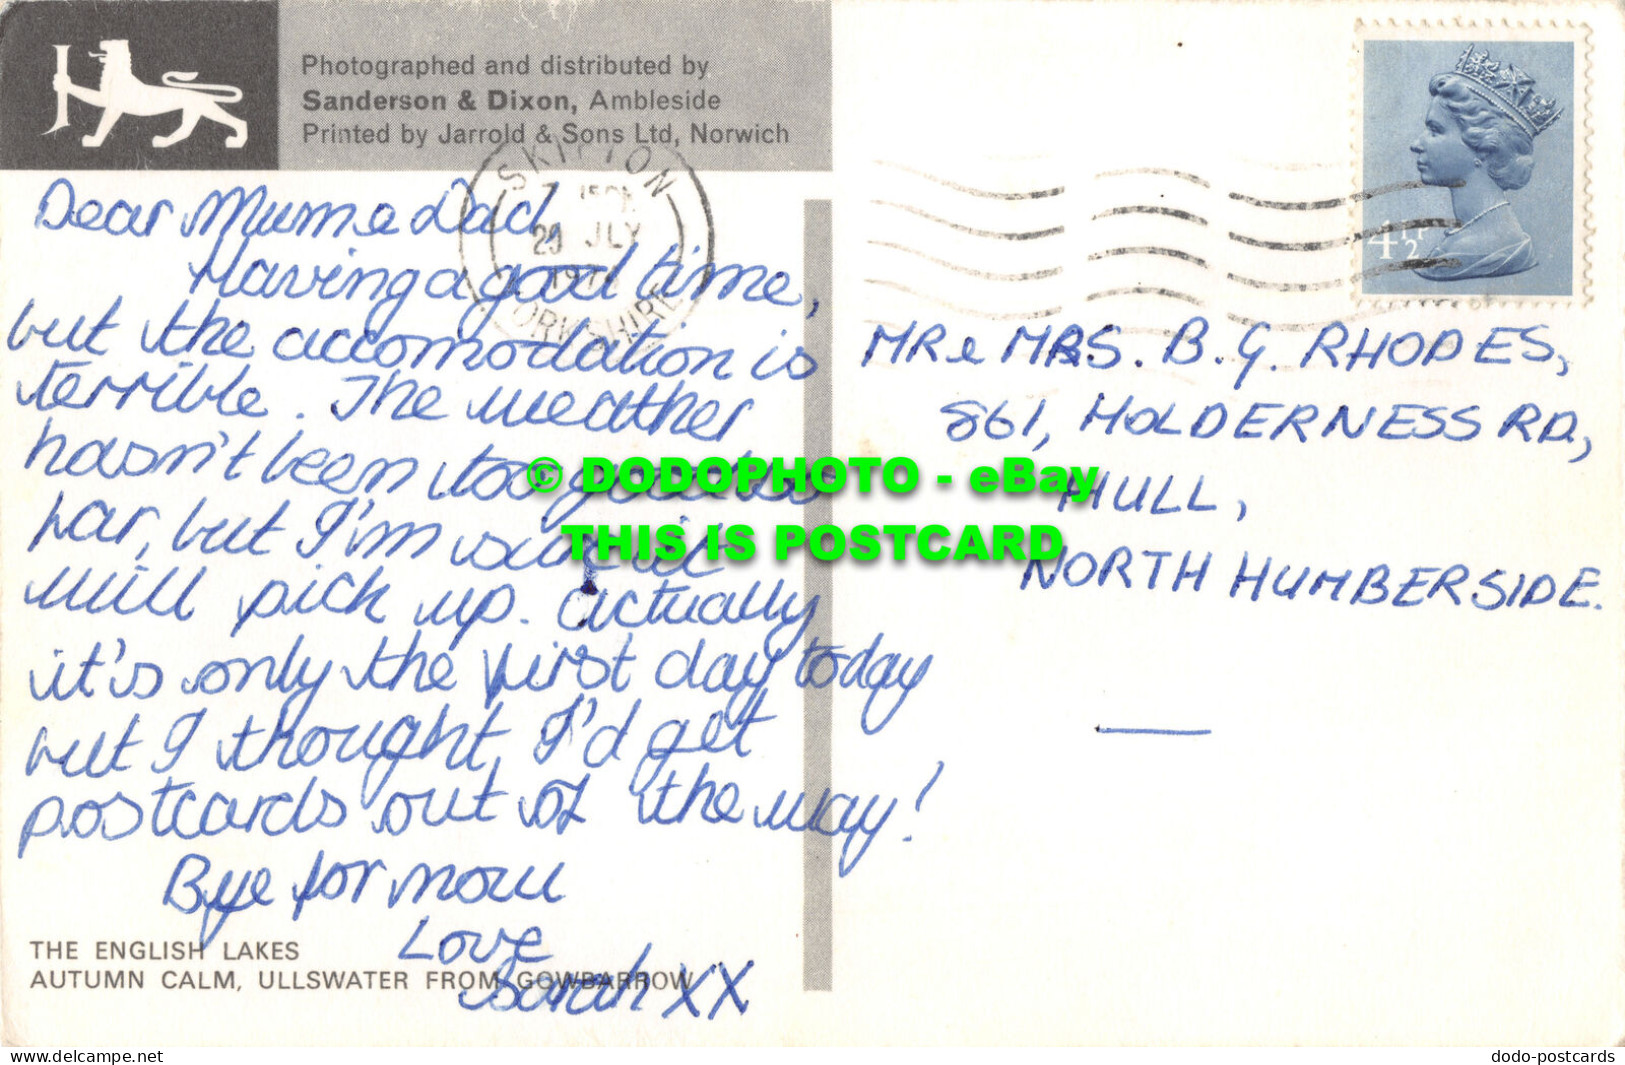 Photographed and distributed by
Sanderson & Dixon, Ambleside
Printed by Jarrold & Sons Ltd, Norwich
SKIPTON
20 JLY
YORKSHIRE
4½P
Dear Mum & Dad,
Having a good time,
but the accomodation is
terrible. The weather
hasn't been too good so
far, but I'm sure it
will pick up. Actually
it's only the first day today
but I thought, I'd get
postcards out of the way!
Bye for now
Love
Sarah XX
MR & MRS. B. G. RHODES,
861, HOLDERNESS RD,
HULL,
NORTH HUMBERSIDE.
© DODOPHOTO - eBay
THIS IS POSTCARD
THE ENGLISH LAKES
AUTUMN CALM, ULLSWATER FROM GOWBARROW
www.delcampe.net
dodo-postcards